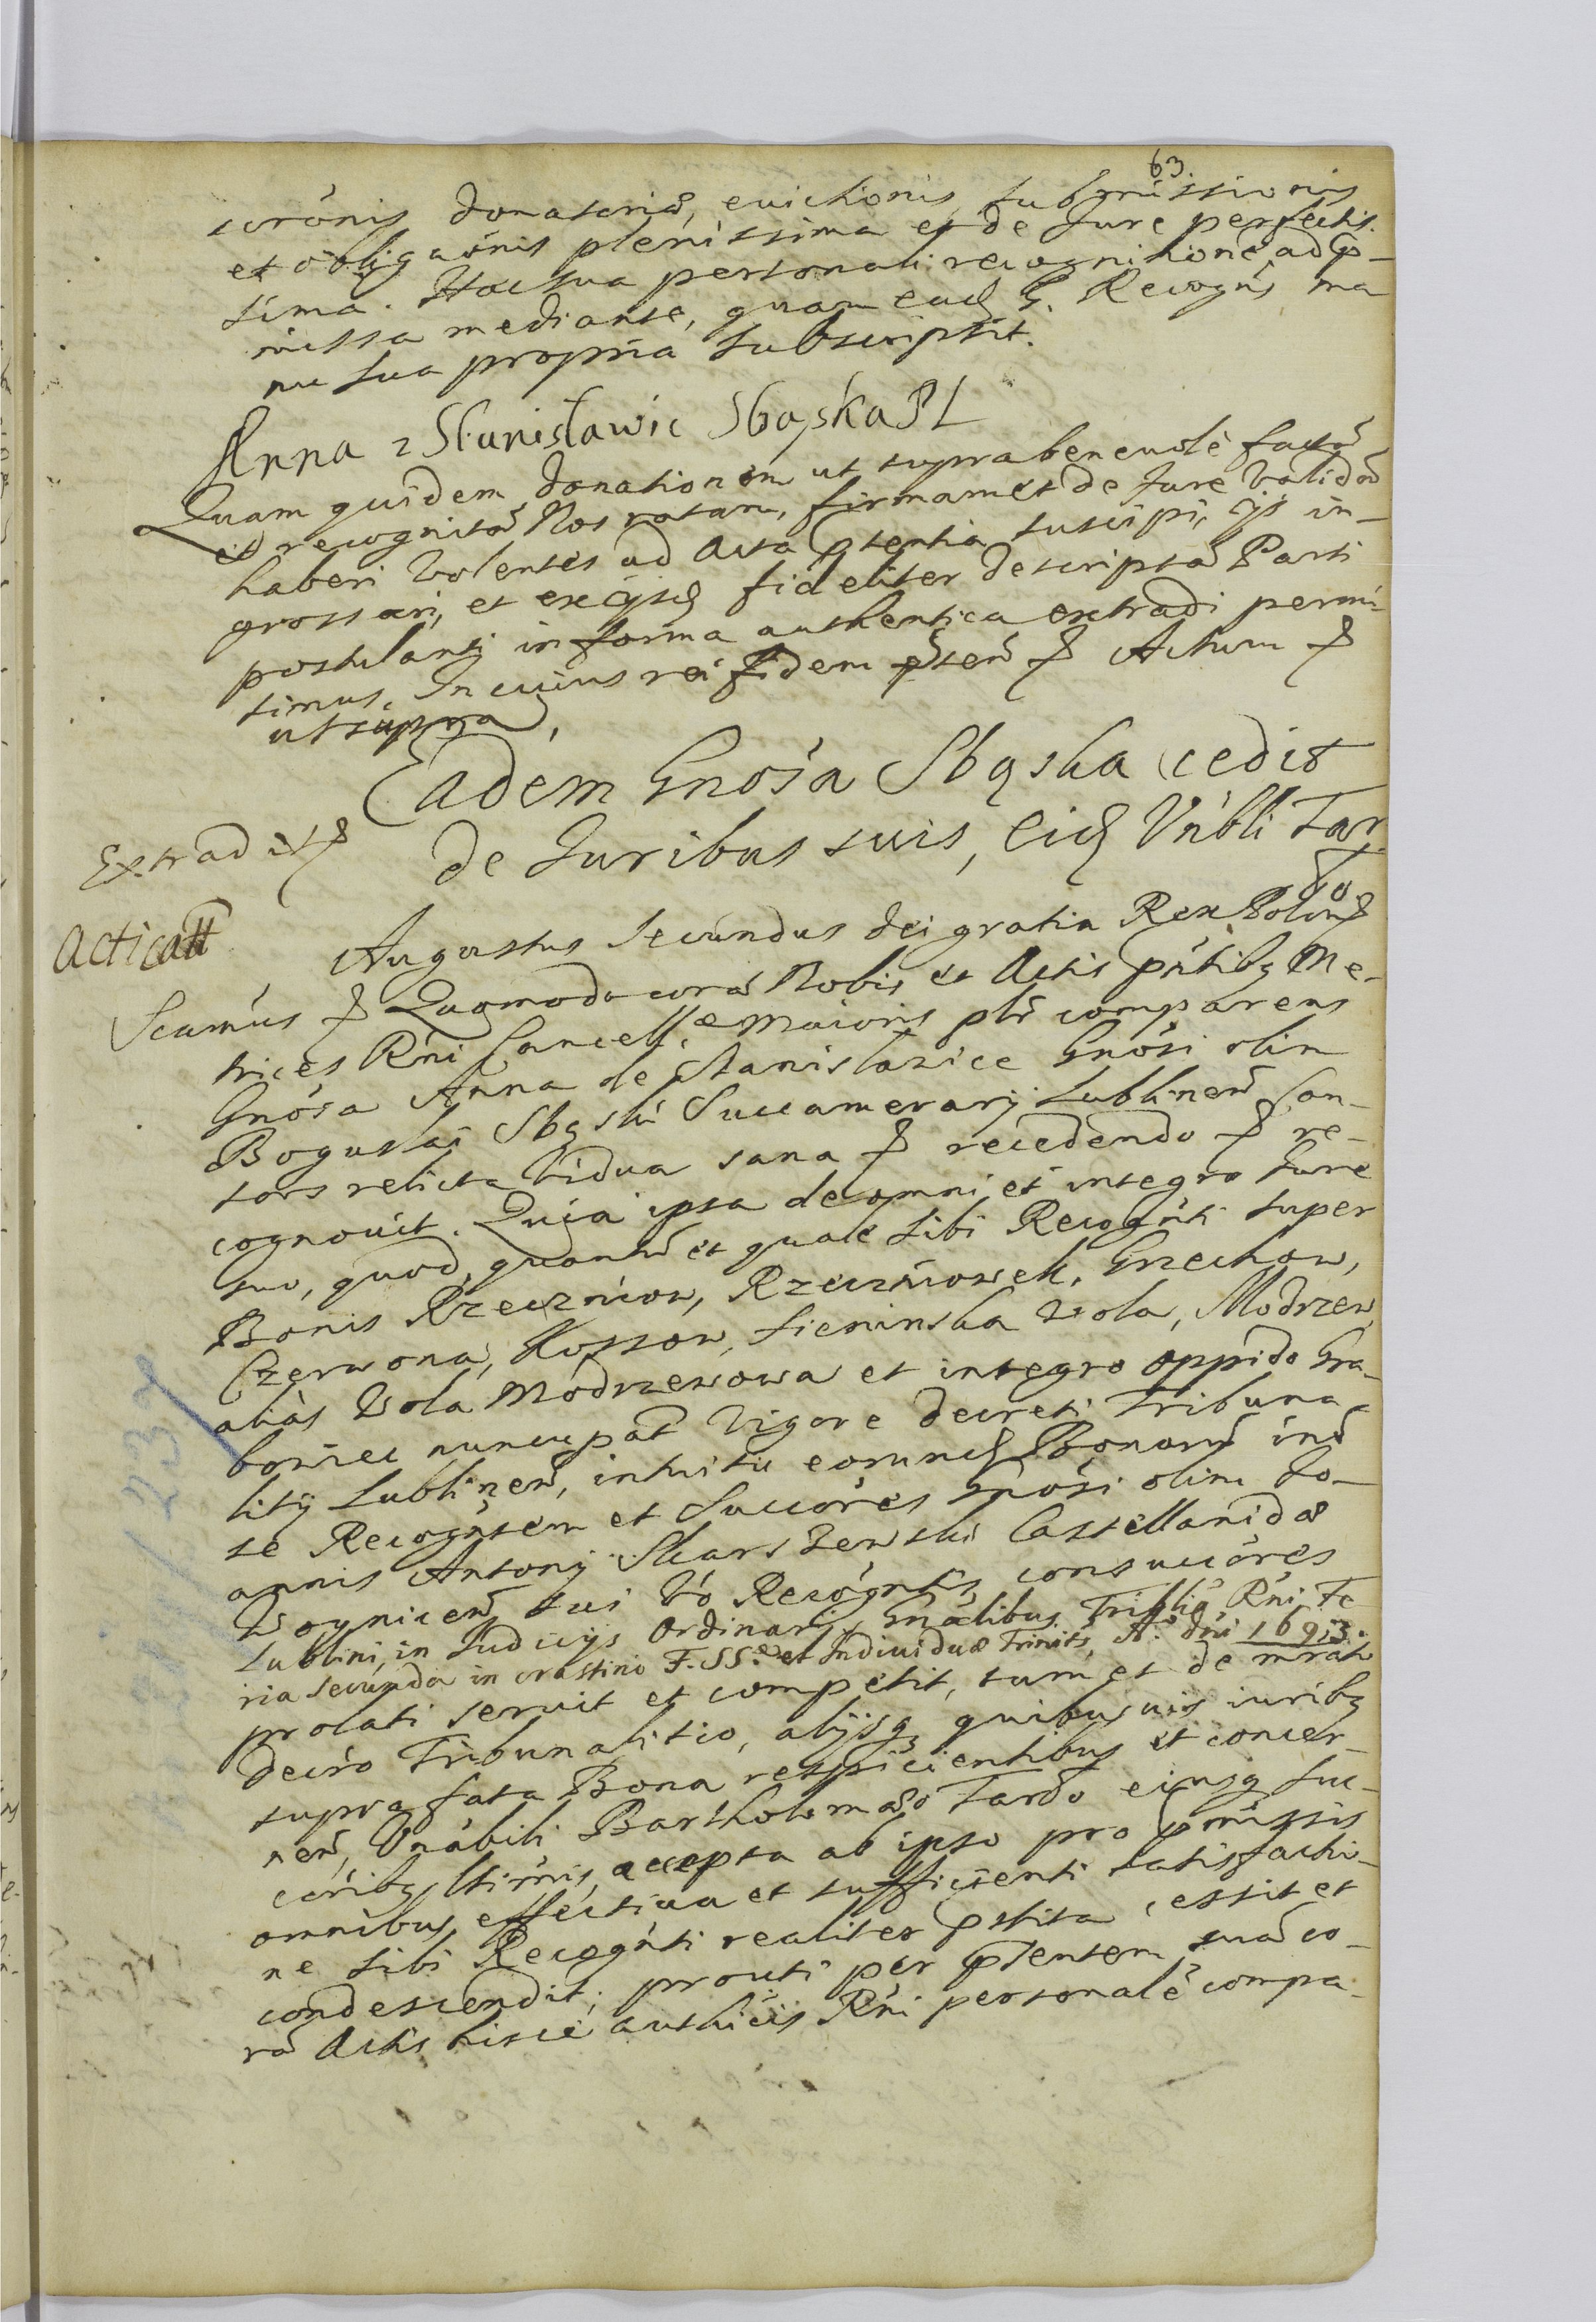 63.
scrönis donatoriæ, evictionis submissionis
et obligaönis plenissima et de Jure perfectis-
sima. Hac sua personali recognitione ad p-
missa mediante, quam eadȝ G. Recogñs ma
nu sua propria subscripsit.
Anna z Stanisławic Sbąska PL
Quam quidem donationem ut supra benevolè factã
et recognitã Nos ratam, firmam et de Jure validã
haberi volentes ad Acta pñtia suscipi, ijs in-
grossari, et ex ijsdȝ fideliter descriptã Parti
postulanti in forma authentica extradi permi-
simus. In cuius rei fidem pñten Actum
ut supra.
Eadem Gnosa Sbąska cedit
de Juribus suis, eidȝ Vnbli Tar
do
Extradit
Acticatt
Augustus Secundus Dei gratia Rex Polon
Scamus Quomodo corã Nobis et Actis pñtibȝ Me-
trices Rñi Cancellæ Maioris plr comparens
Gnosa Anna de Stanislawice Gnosi olim
Boguslai Sbąski Succamerarij Lublineñ Con-
sors relicta Vidua sana recedendo re-
cognovit. Quia ipsa de omni et integro Jure
suo, quod, quantũ et quale sibi Recogñti super
Bonis Rzeczniow, Rzeczniowek, Grechow,
Czerwona, Kossow, Sieninska Wola, Modrzew
aliàs Wola Modrzewowa et integro oppido Gra-
bowiec nuncupat Vigore decreti Tribuna-
litij Lublineñ, intuitu eorundȝ Bonorũ inđ
se Recogñtem et Succöres Gnosi olim Jo-
annis Antonij Skarszewski Castellanidæ
Woyniceñ sui Vo Recogñtis consuccöres
Lublini, in Judicijs Ordinarijs Gnälibus Triblis Rñi Fe
ria Secunda in crastino F. SS.æ et Individuæ Trinits, Ao. Dni 1693.
prolati servit et competit, tum et de mrato
decro Tribunalitio, alijsqȝ quibusvis iuribȝ
supra fata Bona respicientibus et concer-
neñ, Vnabili Bartholomæo Tardo eiusqȝ suc-
coribȝ ltimis, accepta ab ipso pro pmissis
omnibus effectiva et sufficienti satisfactio-
ne sibi Recogñti realiter pstita, cessit et
condescendit; prouti per pñtentem suã co-
rã Actis hisce authcis Rñi personalẽ compa-